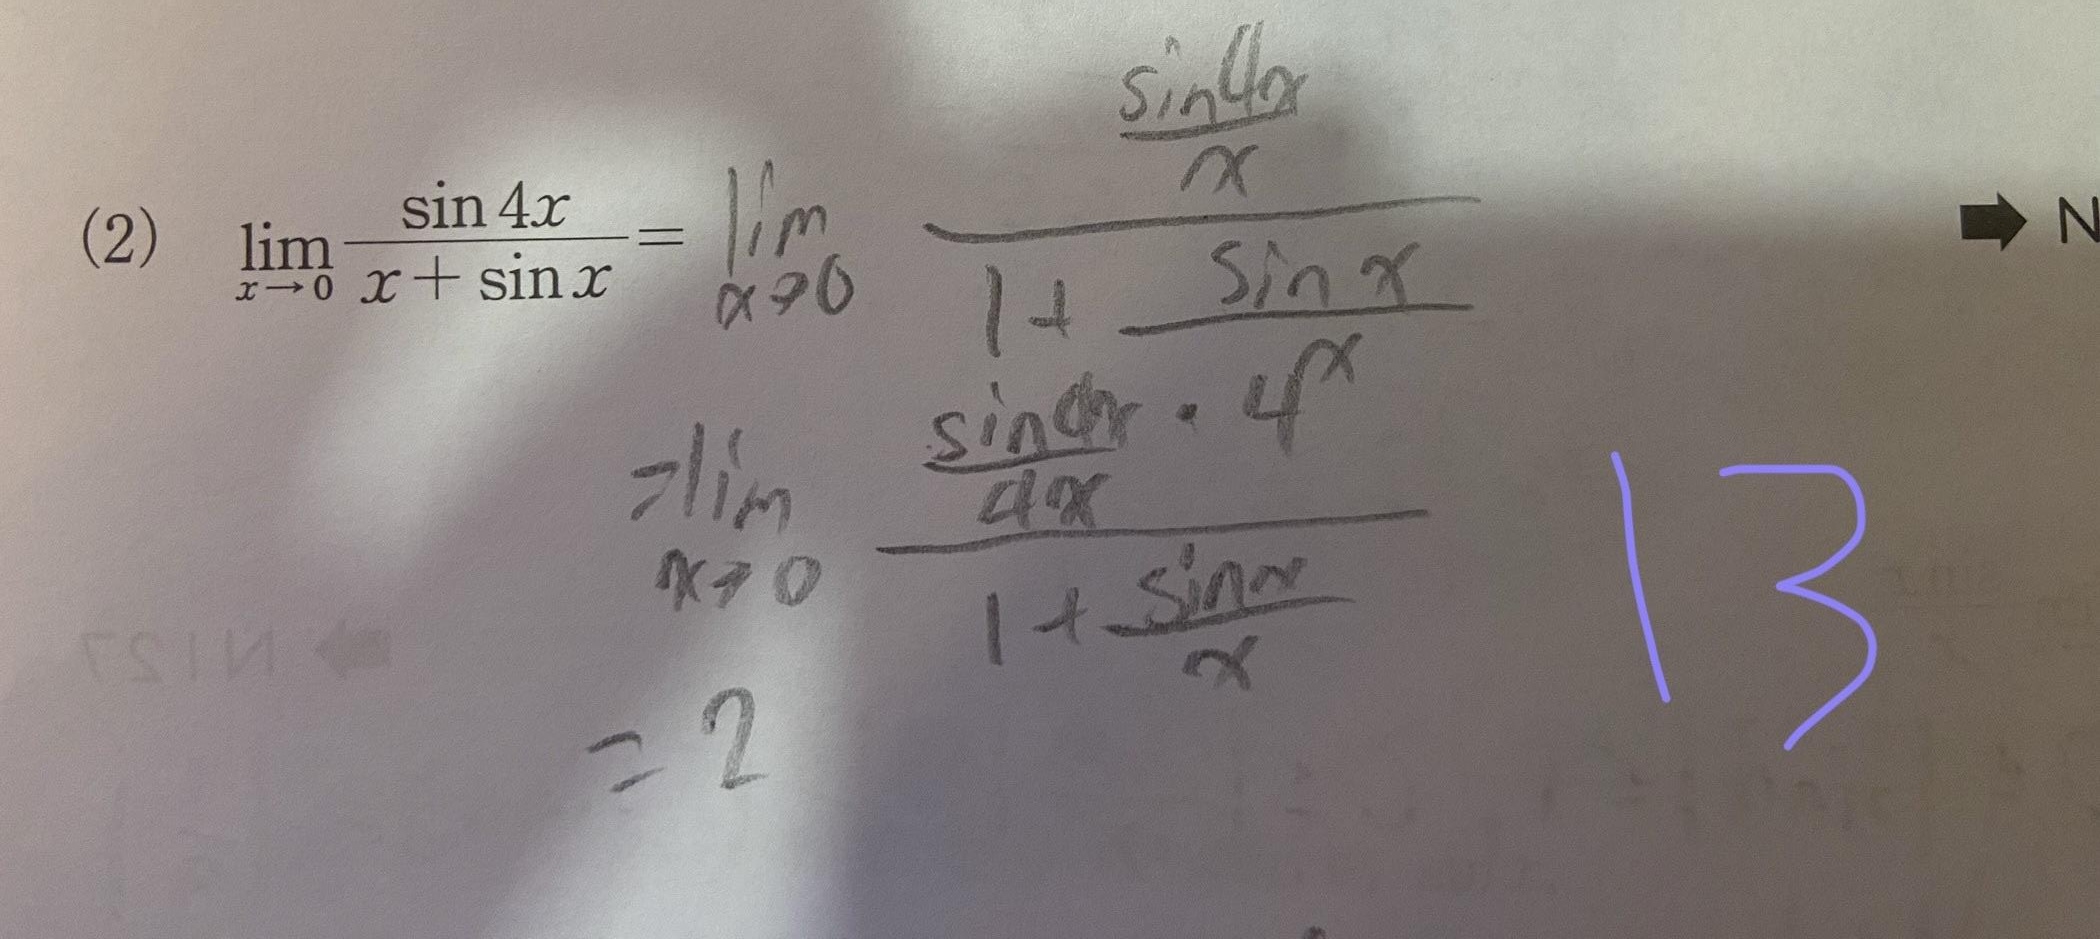 (2) lim x→0 sin 4x / x + sin x = lim x→0 (sin 4x / x) / (1 + sin x / x)
➡ N
= lim x→0 (sin 4x / 4x · 4) / (1 + sin x / x)
13
N127
= 2